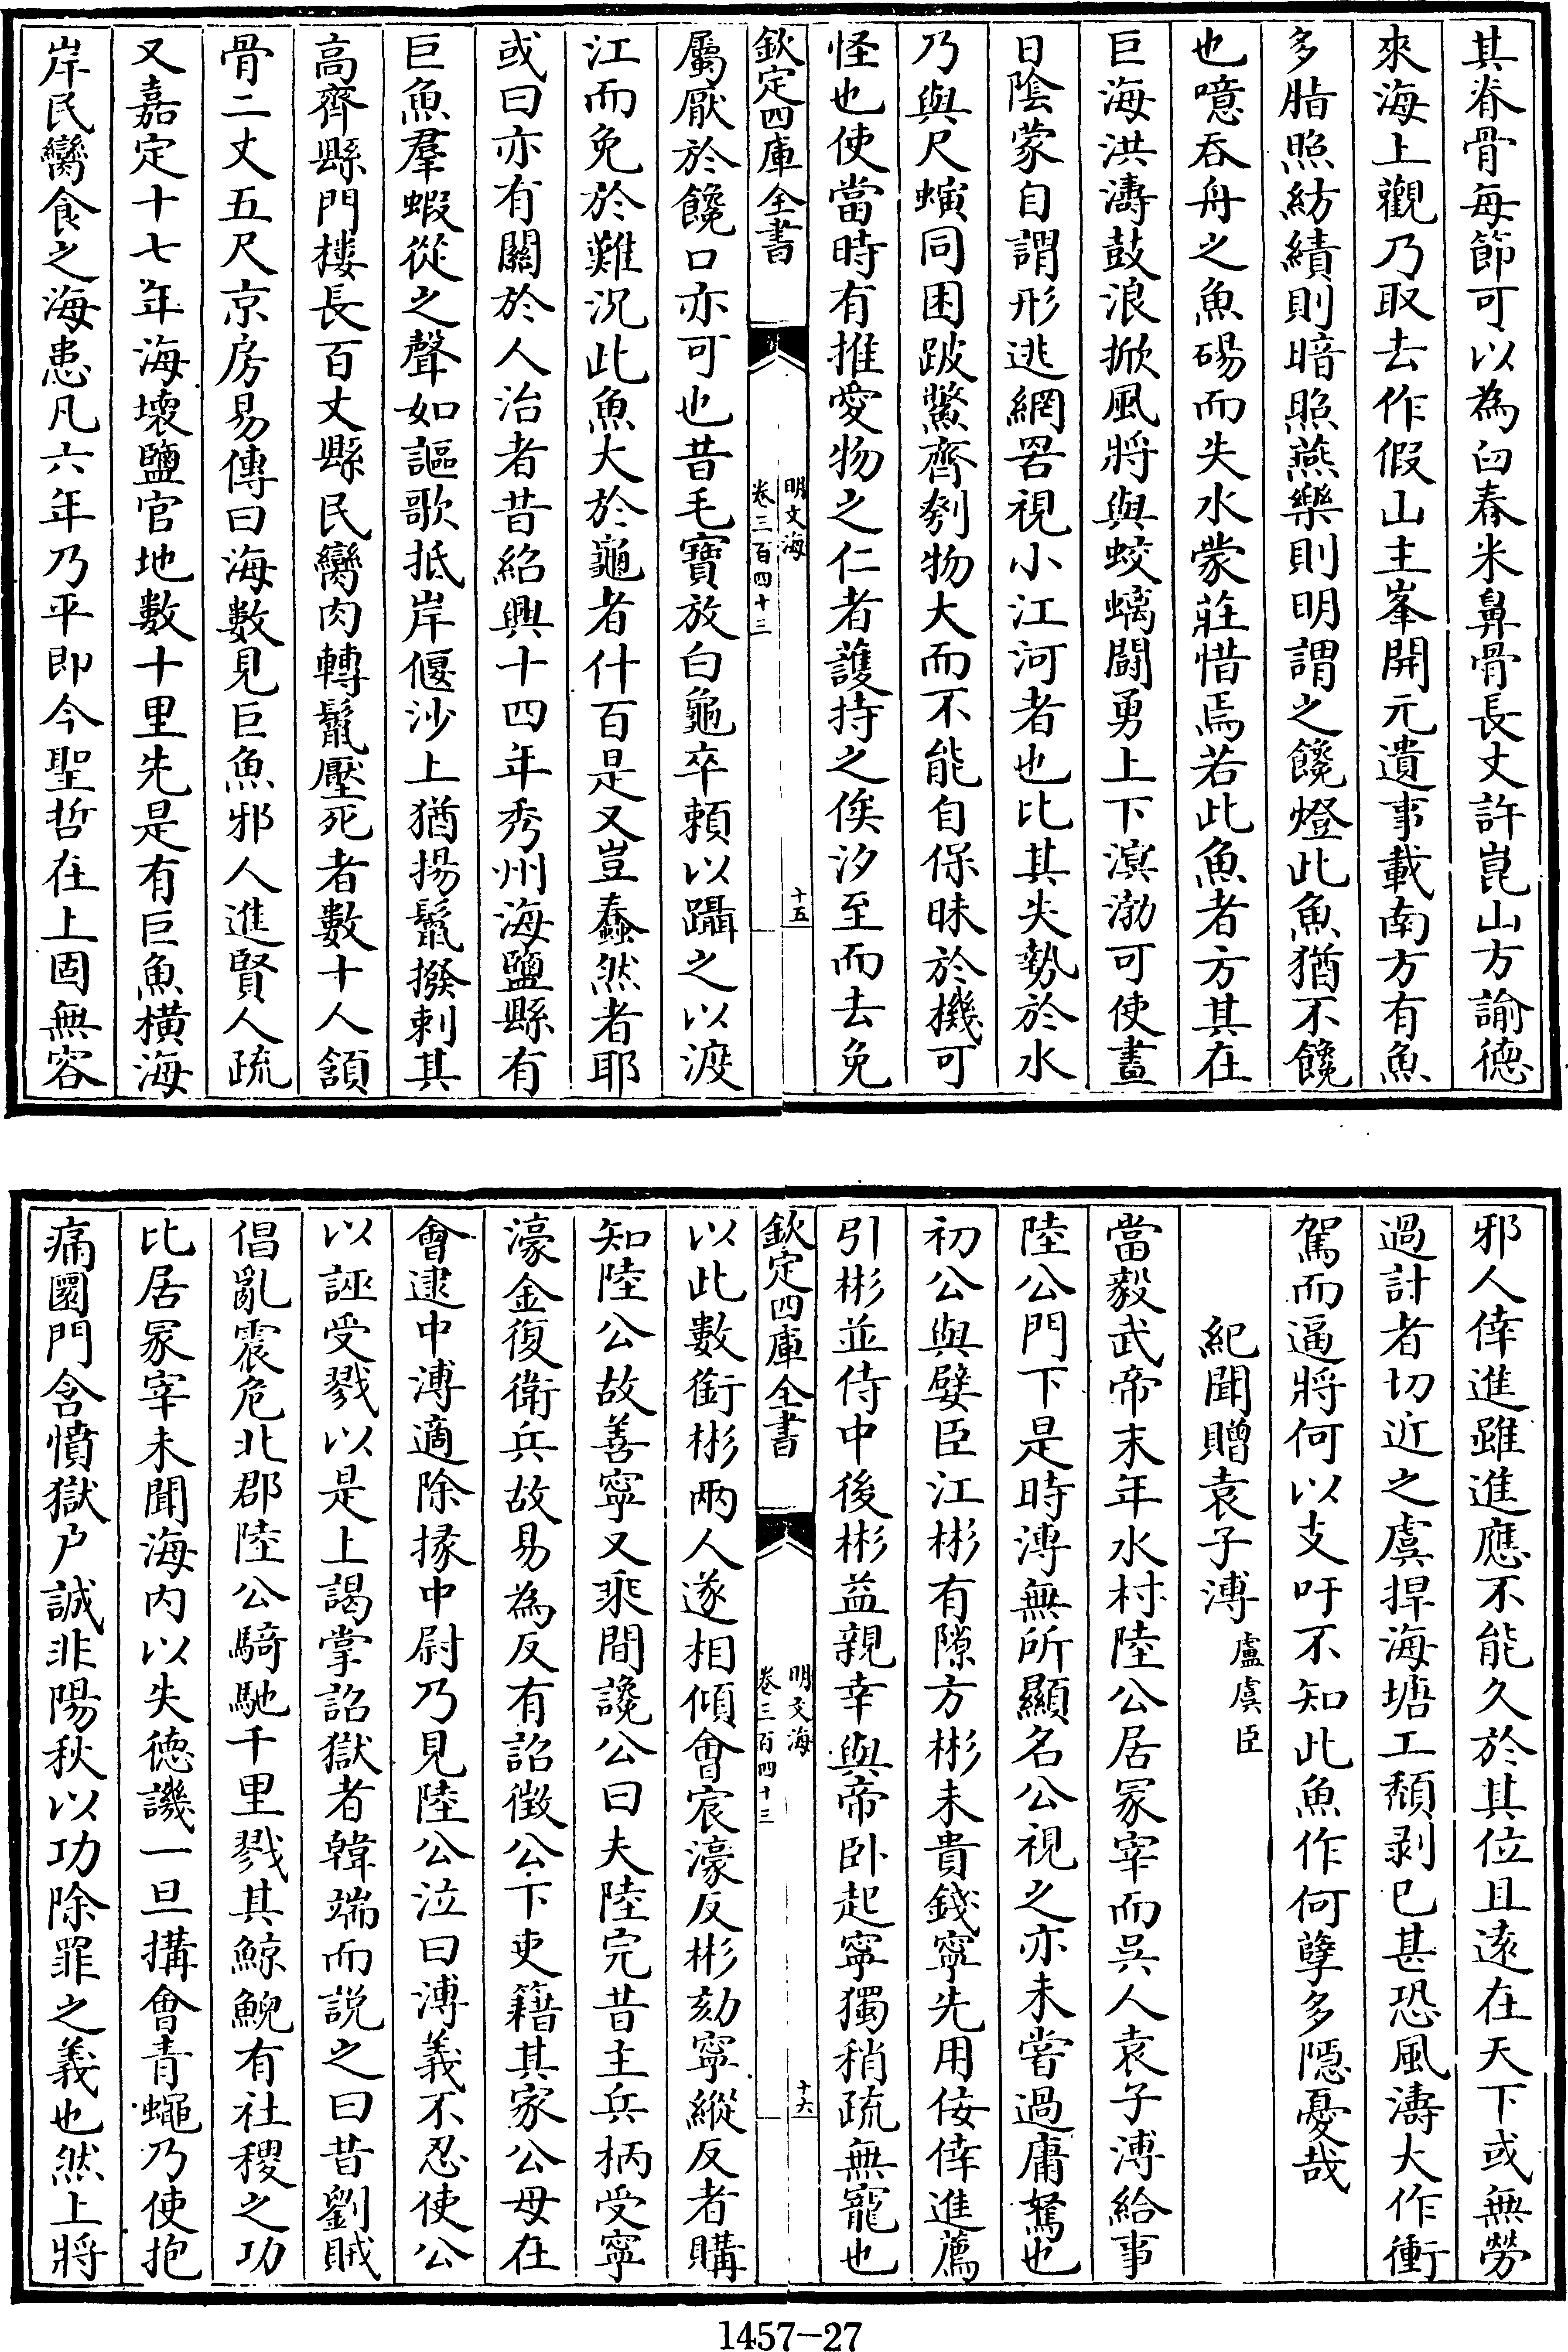 其脊骨每節可以為臼舂米鼻骨長丈許崑山方諭徳
來海上觀乃取去作假山主峯開元遺事載南方有魚
多脂照紡績則暗照燕樂則明謂之饞燈此魚猶不饞
也噫吞舟之魚碭而失水蒙莊惜焉若此魚者方其在
巨海洪濤鼓浪掀風將與蛟螭闘勇上下溟渤可使晝
日隂蒙自謂形逃網罟視小江河者也比其失勢於水
乃與尺螾同困跛鱉齊刳物大而不能自保昧於機可
怪也使當時有推愛物之仁者護持之俟汐至而去免
欽定四庫全書
明文海
卷三百四十三
十五
屬厭於饞口亦可也昔毛寶放白龜卒頼以躡之以渡
江而免於難況此魚大於龜者什百是又豈蠢然者耶
或曰亦有關於人治者昔紹興十四年秀州海鹽縣有
巨魚羣蝦從之聲如謳歌抵岸偃沙上猶揚鬛撥剌其
高齊縣門樓長百丈縣民臠肉轉鬛壓死者數十人頷
骨二丈五尺京房易傳曰海數見巨魚邪人進賢人疏
又嘉定十七年海壞鹽官地數十里先是有巨魚横海
岸民臠食之海患凡六年乃平即今聖哲在上固無容
邪人倖進雖進應不能久於其位且逺在天下或無勞
過計者切近之虞捍海塘工頽剥已甚恐風濤大作衝
駕而逼將何以支吁不知此魚作何孽多隱憂哉
紀聞贈袁子溥 盧虞臣
當毅武帝末年水村陸公居冢宰而吳人袁子溥給事
陸公門下是時溥無所顯名公視之亦未甞過庸駑也
初公與嬖臣江彬有隙方彬未貴錢寧先用佞倖進薦
引彬並侍中後彬益親幸與帝卧起寧獨稍疏無寵也
欽定四庫全書
明文海
卷三百四十三
十六
以此數銜彬兩人遂相傾㑹宸濠反彬劾寧縱反者購
知陸公故善寧又乘間讒公曰夫陸完昔主兵柄受寧
濠金復衛兵故易為反有詔徴公下吏籍其家公母在
㑹逮中溥適除掾中尉乃見陸公泣曰溥義不忍使公
以誣受戮以是上謁掌詔獄者韓端而説之曰昔劉賊
倡亂震危北郡陸公騎馳千里戮其鯨鯢有社稷之功
比居冢宰未聞海内以失徳譏一旦搆㑹青蠅乃使抱
痛圜門含憤獄户誠非陽秋以功除罪之義也然上將
1457-27